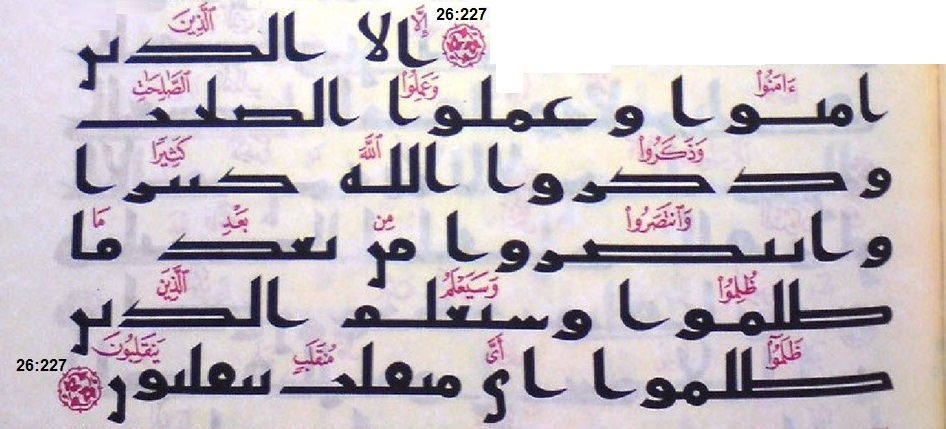 26:227
إِلَّا ٱلَّذِينَ
الا الذين
ءَامَنُوا۟ وَعَمِلُوا۟ ٱلصَّٰلِحَٰتِ
امنوا وعملوا الصلحت
وَذَكَرُوا۟ ٱللَّهَ كَثِيرًا
وذكروا الله كثيرا
وَٱنتَصَرُوا۟ مِنۢ بَعْدِ مَا
وانتصروا من بعد ما
ظُلِمُوا۟ وَسَيَعْلَمُ ٱلَّذِينَ
ظلموا وسيعلم الذين
ظَلَمُوٓا۟ أَىَّ مُنقَلَبٍ يَنقَلِبُونَ
ظلموا اي منقلب ينقلبون
26:227